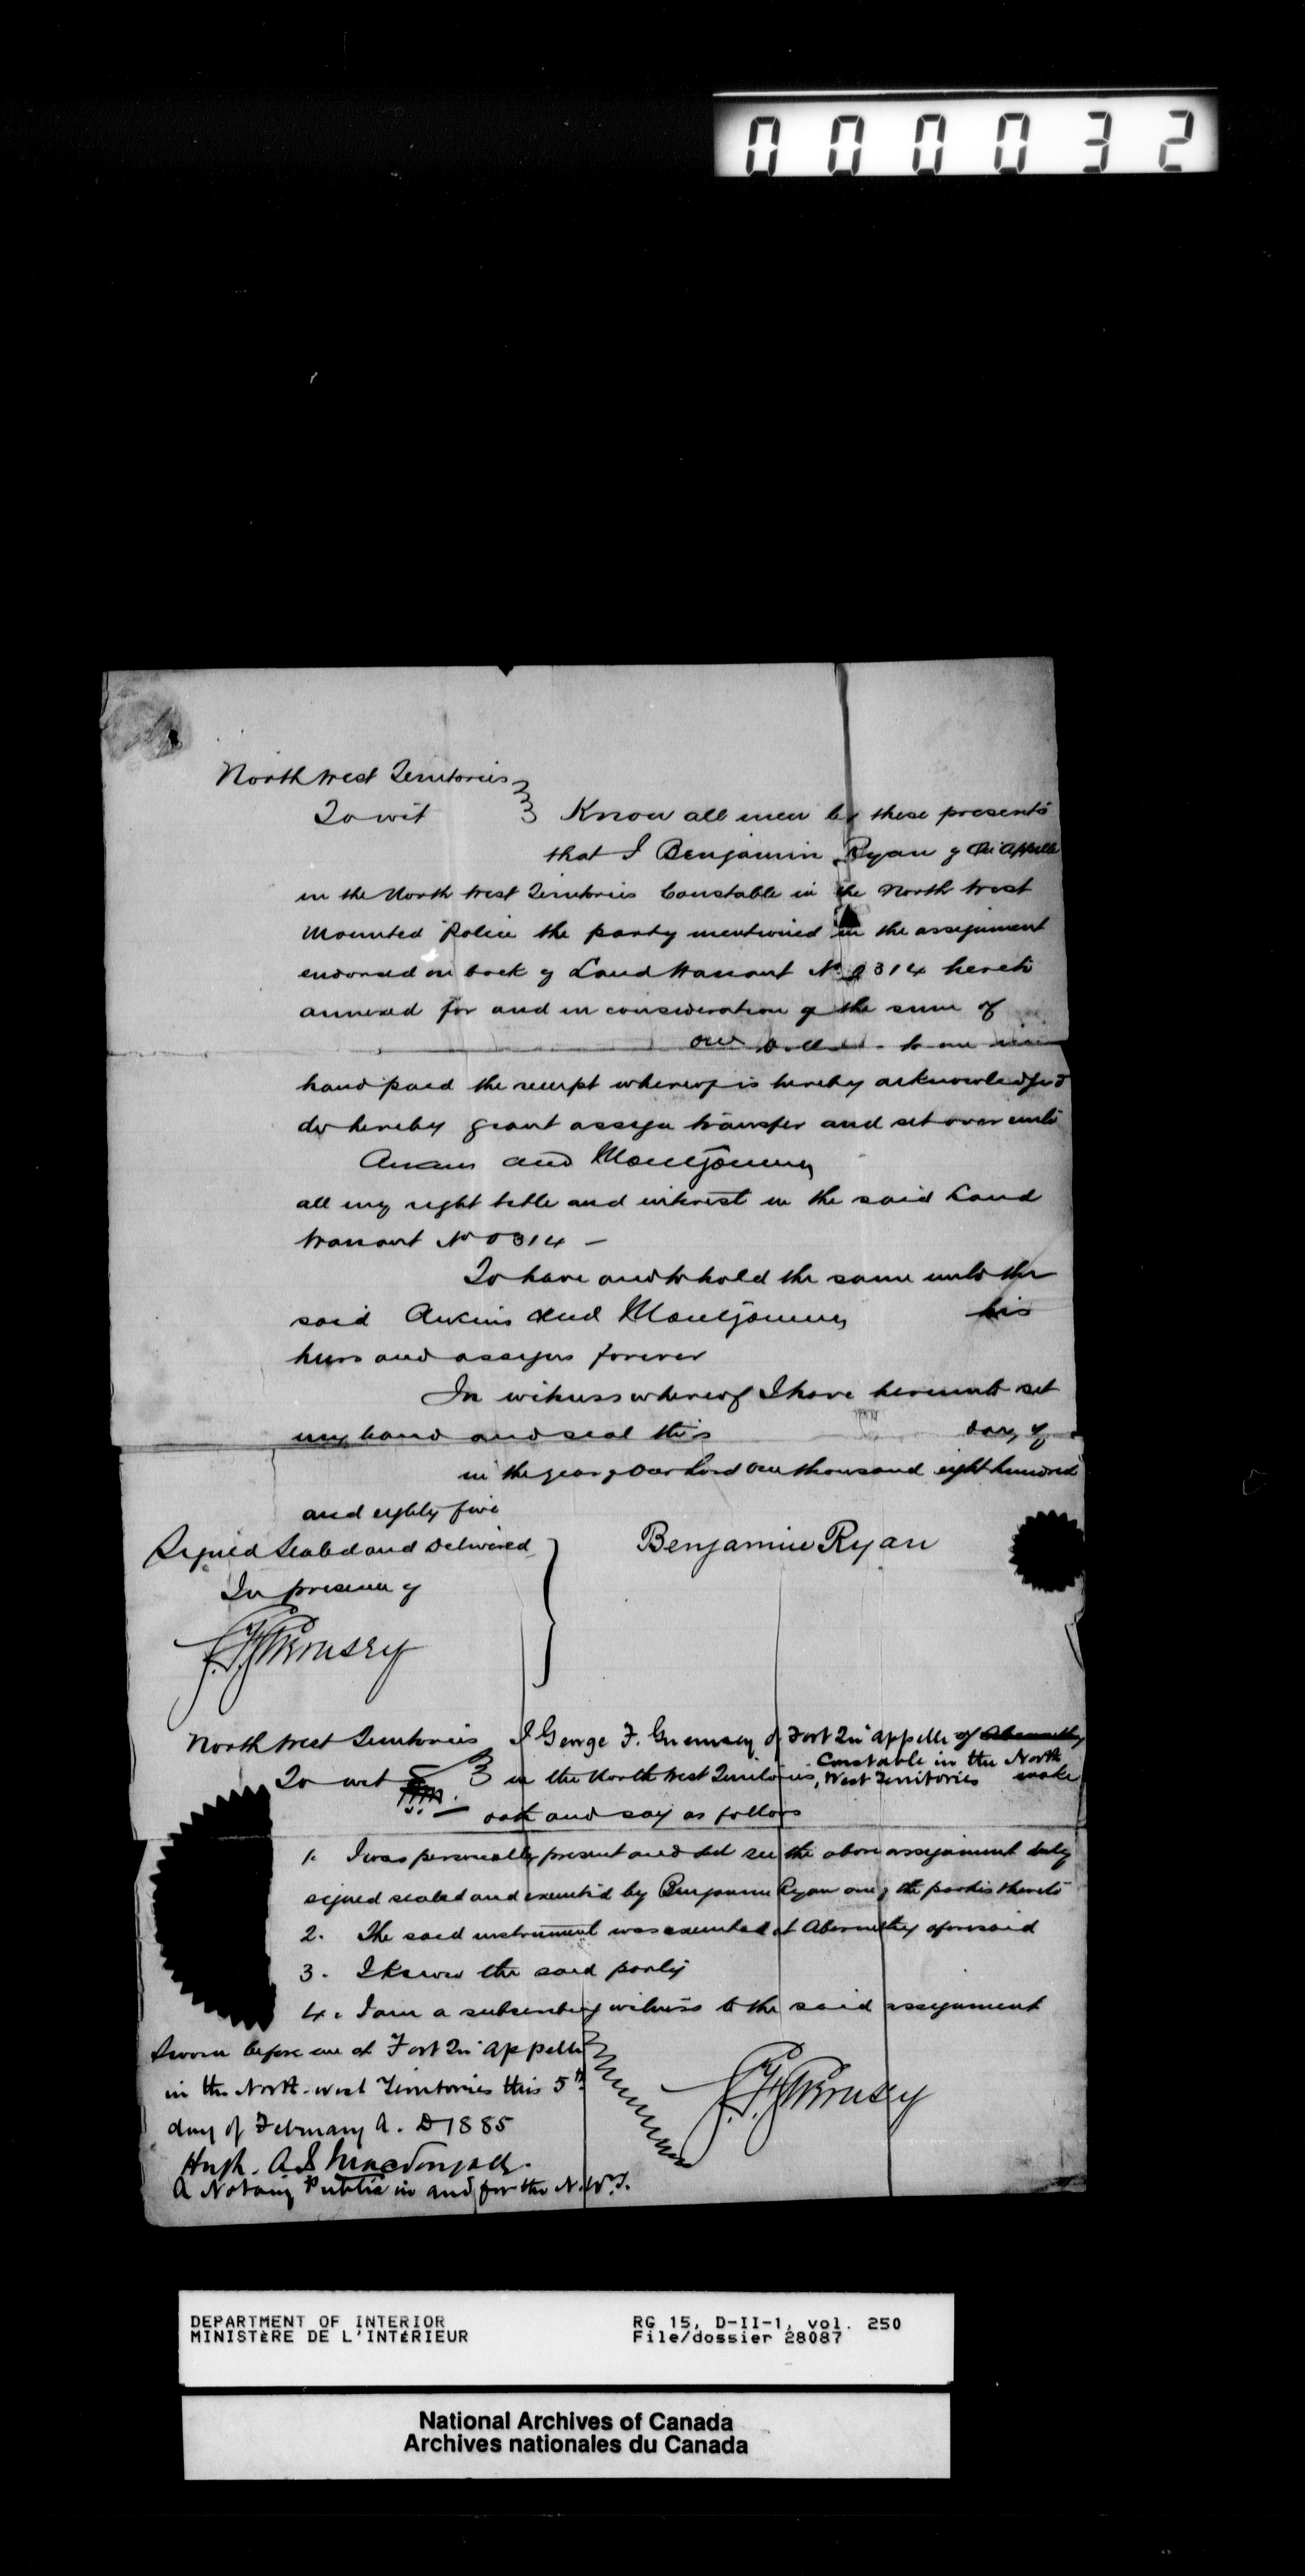 000032
North West Territories
To wit Know all men by these presents
that I Benjamin Ryan of Qu'Appelle
in the North West Territories Constable in the North West
Mounted Police the party mentioned in the assignment
endorsed on back of Land Warrant No 0314 hereto
annexed for and in consideration of the sum of
one Dollar to me in
hand paid the receipt whereof is hereby acknowledged
do hereby grant assign transfer and set over unto
and Montgomery
all my right title and interest in the said Land
Warrant No 0314 –
To have and to hold the same unto the
said and Montgomery his
heirs and assigns forever
In witness whereof I have hereunto set
my hand and seal this day of
in the year of Our Lord one thousand eight hundred
and eighty five
Signed Sealed and Delivered
In presence of
Benjamin Ryan
G. F. Guernsey
North West Territories I George F. Guernsey of Fort Qu'appelle of Abernethy
Constable in the North
To wit in the North West Territories, West Territories make
oath and say as follows
1. I was personally present and did see the above assignment duly
signed sealed and executed by Benjamin Ryan one of the parties thereto
2. The said instrument was executed at Abernethy aforesaid
3. I know the said party
4. I am a subscribing witness to the said assignment
Sworn before me at Fort Qu'appelle
in the North-west Territories this 5th
day of February A. D 1885
G. F. Guernsey
Hugh. A
A Notary Public in and for the N.W.T.
DEPARTMENT OF INTERIOR
MINISTÈRE DE L'INTÉRIEUR
RG 15, D-II-1, vol. 250
File/dossier 28087
National Archives of Canada
Archives nationales du Canada